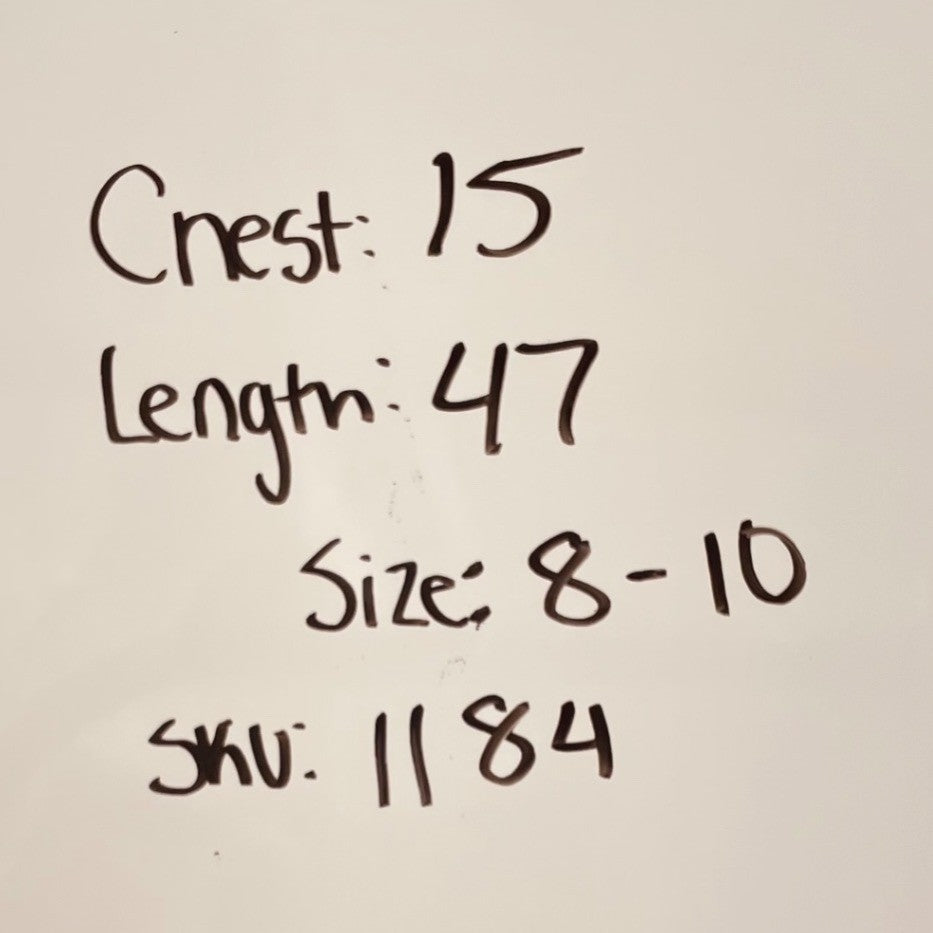 Chest: 15
Length: 47
Size: 8-10
SKU: 1184